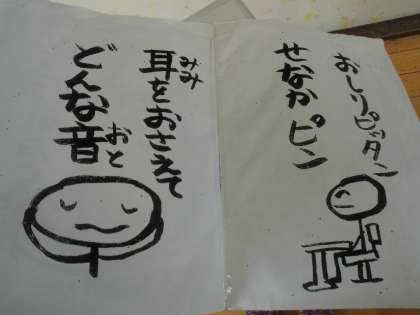 おしりピッタン
せなかピン
耳をおさえて
みみ
どんな音
おと